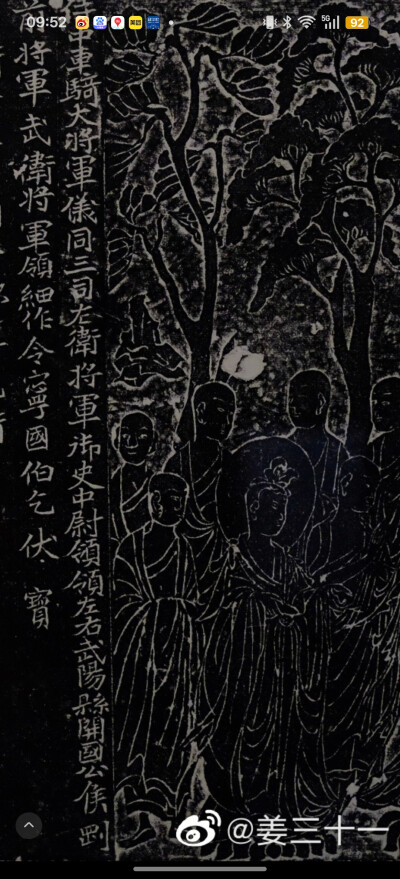 09:52
5G
92
車騎大將軍儀同三司左衛將軍御史中尉領領左右武陽縣開國公侯剛
將軍武衛將軍領細作令寧國伯乞伏寶
@姜三十一